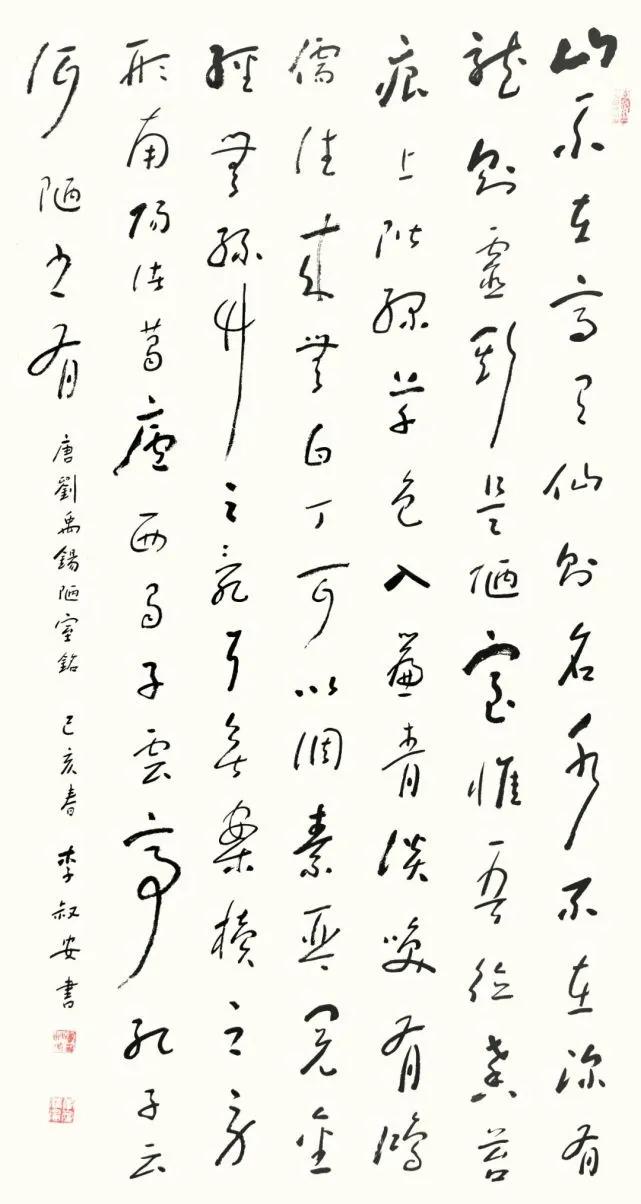 山不在高有仙則名水不在深有
龍則靈斯是陋室惟吾德馨苔
痕上階綠草色入簾青談笑有鴻
儒往來無白丁可以調素琴閱金
經無絲竹之亂耳無案牘之勞
形南陽諸葛廬西蜀子雲亭孔子云
何陋之有 唐劉禹錫陋室銘 己亥春 李叔安書